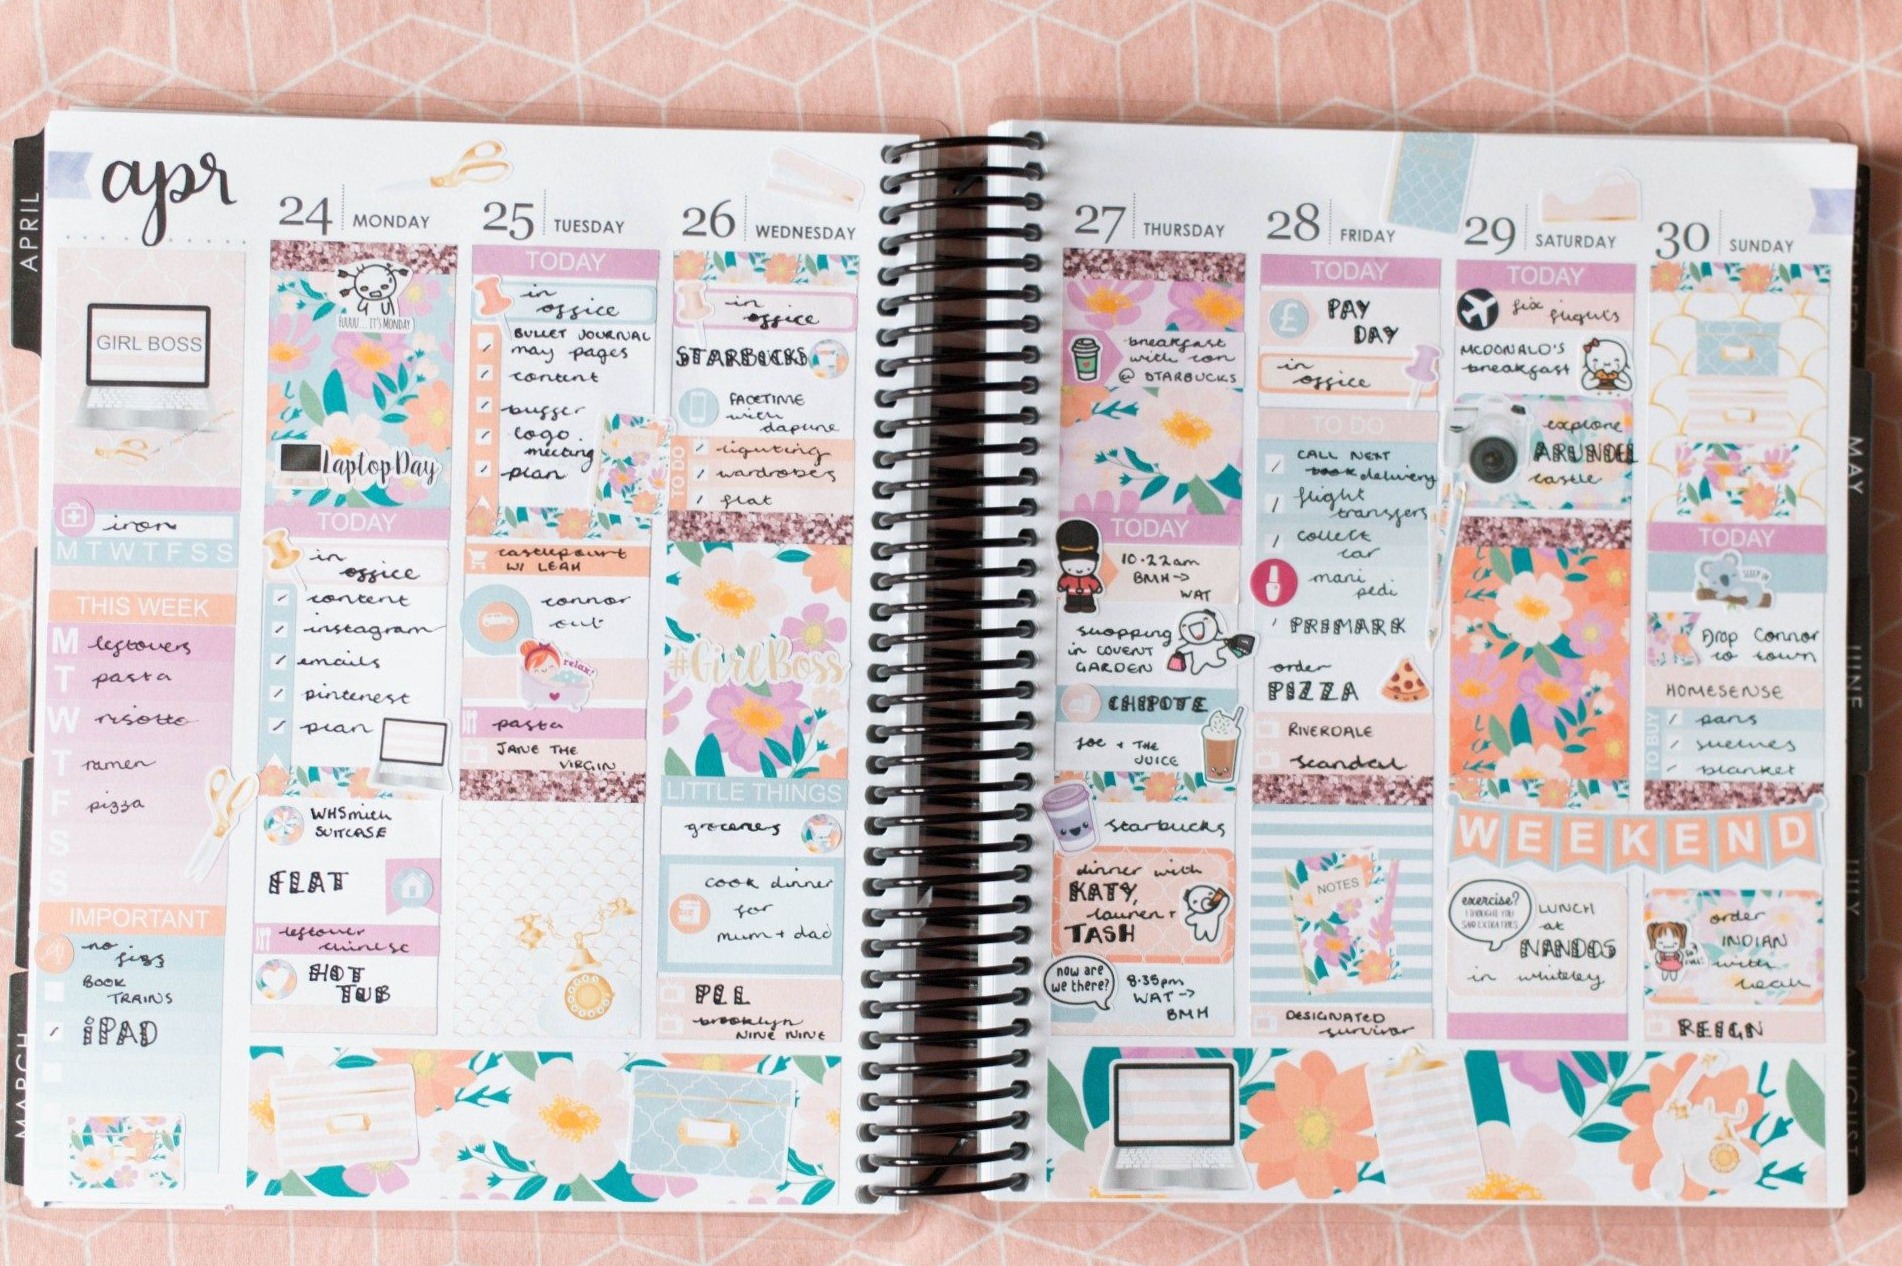 apr
APRIL
MARCH
GIRL BOSS
iron
M T W T F S S
THIS WEEK
M leftovers
T pasta
W risotto
T ramen
F pizza
S
S
IMPORTANT
no
BOOK
TRAINS
iPAD
24 MONDAY
IT'S MONDAY
Laptop Day
TODAY
in
office
content
instagram
emails
pinterest
plan
WHSmith
SUITCASE
FLAT
leftover
chinese
HOT
TUB
25 TUESDAY
TODAY
in
office
BULLET JOURNAL
may pages
content
buffer
logo.
meeting
plan
castlepoint
W/ LEAH
connor
out
relax!
pasta
JANE THE
VIRGIN
26 WEDNESDAY
in
office
STARBUCKS
FACETIME
with
daphne
TO DO
lighting
wardrobes
flat
#GirlBoss
LITTLE THINGS
groceries
cook dinner
for
mum + dad
PLL
brooklyn
NINE NINE
27 THURSDAY
breakfast
with con
@ STARBUCKS
TODAY
10.22am
BMH->
WAT
shopping
in COVENT
GARDEN
CHIPOTE
JOE + THE
JUICE
starbucks
dinner with
KATY,
lauren +
TASH
now are
we there?
8.35pm
WAT->
BMH
28 FRIDAY
TODAY
PAY
DAY
in
office
TO DO
CALL NEXT
book delivery
flight
transfers
collect
car
mani
pedi
PRIMARK
order
PIZZA
RIVERDALE
scandal
NOTES
DESIGNATED
survivor
29 SATURDAY
TODAY
fix flights
MCDONALD'S
breakfast
explore
ARUNDEL
castle
WEEKEND
exercise?
I THOUGHT YOU
SAID EXTRA FRIES
LUNCH
at
NANDOS
in whiteley
30 SUNDAY
TODAY
SLEEP IN
Drop Connor
to town
HOMESENSE
TO BUY
pans
shelves
blanket
order
INDIAN
with
leah
REIGN
MAY
JUNE
JULY
AUGUST